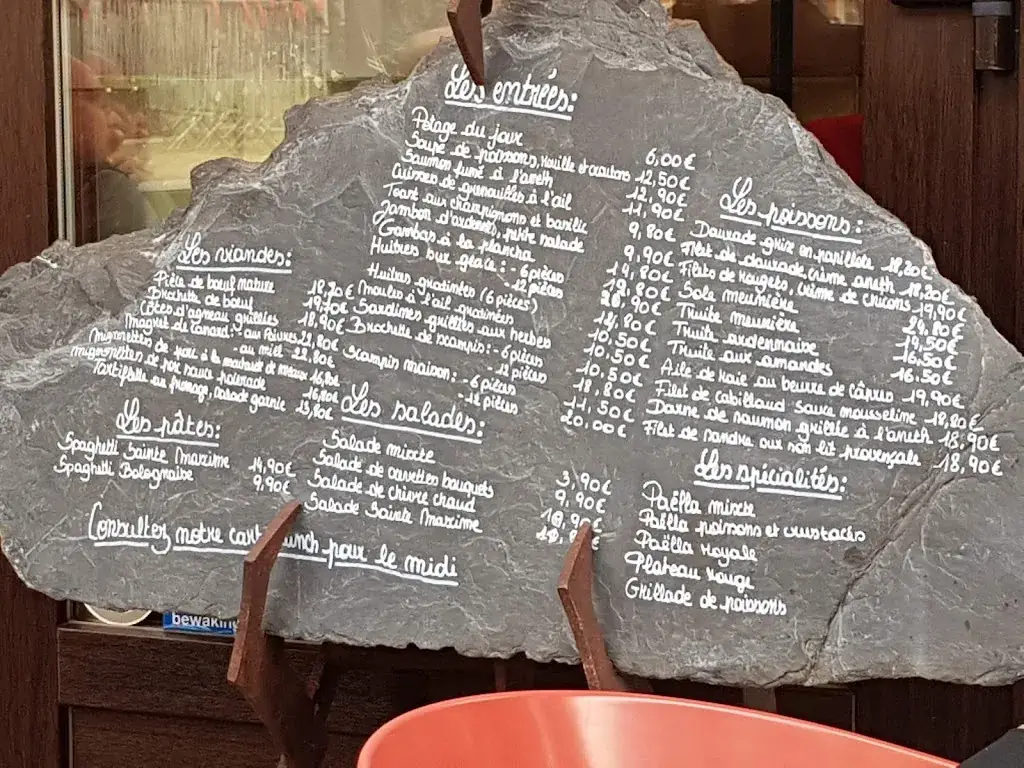 Les entrées:
Potage du jour 6,00€
Soupe de poissons, rouille et croutons 12,50€
Saumon fumé à l'aneth 12,90€
Cuisses de grenouilles à l'ail 11,90€
Toast aux champignons et basilic 9,80€
Jambon d'ardennes, petite salade 9,90€
Gambas à la plancha
Huitres sur glace: - 6 pièces
- 12 pièces
Huitres gratinées (6 pièces)
Moules à l'ail gratinées
Sardines grillées aux herbes
Brochette de scampis: - 6 pièces
- 12 pièces
Scampis maison: - 6 pièces 11,50€
- 12 pièces 20,00€
Les viandes:
Pièce de boeuf nature 18,20€
Brochette de boeuf 19,70€
Côtes d'agneau grillées 18,90€
Magret de canard: - aux Poivres 22,80€
- au miel 22,80€
Mignonnettes de porc à la moutarde et 16,80€
Mignonnettes de porc sauce poivrade 16,80€
Tartiflette au fromage, salade garnie 15,80€
Les pâtes:
Spaghetti Sainte Maxime 14,90€
Spaghetti Bolognaise 9,90€
Les salades:
Salade mixte 3,90€
Salade de crevettes bouquets 9,90€
Salade de chèvre chaud
Salade Sainte Maxime
Consultez notre carte lunch pour le midi
Les poissons:
Daurade grise en papillote 18,20€
Filet de daurade, crème aneth 18,20€
Filets de rougets, crème de chicons 19,90€
Sole meunière 24,80€
Truite meunière 14,50€
Truite ardennaise 16,50€
Truite aux amandes 16,50€
Aile de raie au beurre de câpres 19,90€
Filet de cabillaud sauce mousseline 18,80€
Darne de saumon grillée à l'aneth 18,90€
Filet de sandre sur son lit provençale 18,90€
Les spécialités:
Paëlla mixte
Paëlla poissons et crustacés
Paëlla royale
Plateau rouge
Grillade de poissons
bewaking